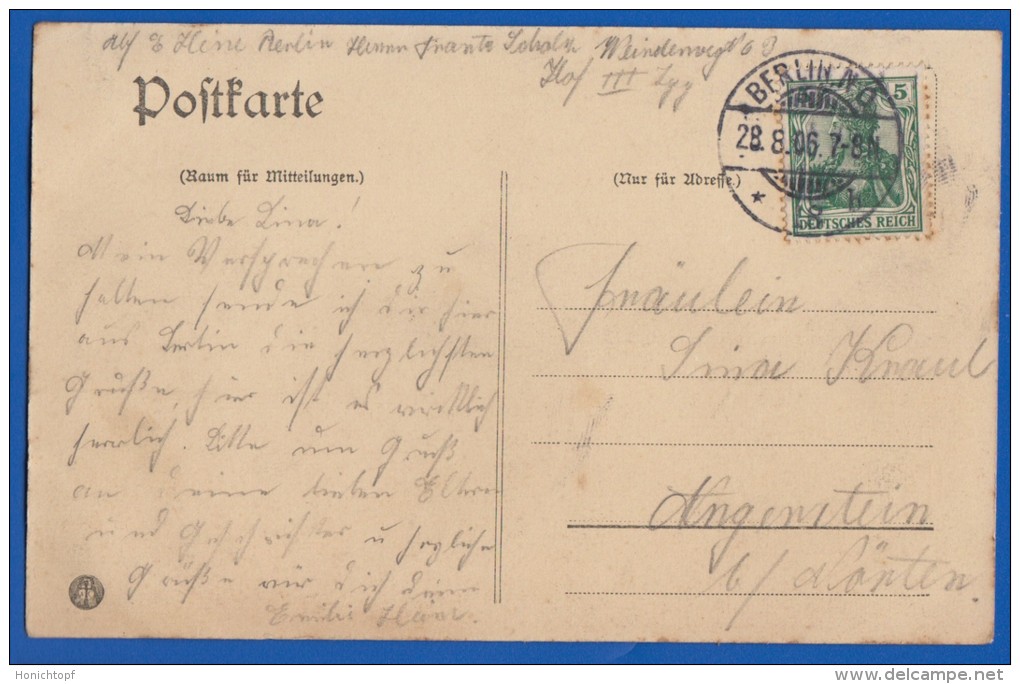 Abs E Heine Berlin Herrn Frantz Scholz
Hof III
Postkarte
BERLIN N.O.
28.8.06. 7-8N.
18 b
5
DEUTSCHES REICH
(Raum für Mitteilungen.)
(Nur für Adresse.)
Liebe Lina!
Mein Versprechen zu
halten sende ich dir hier
aus Berlin die herzlichsten
Grüße, hier ist es wirklich
herrlich. Bitte um Gruß
an deine lieben Eltern
und Geschwister u herzliche
Grüße für dich deine
Emilie Heine.
Fräulein
Lina Knaul
Angerstein
b/ Nörten.
Honichtopf
www.delcampe.net